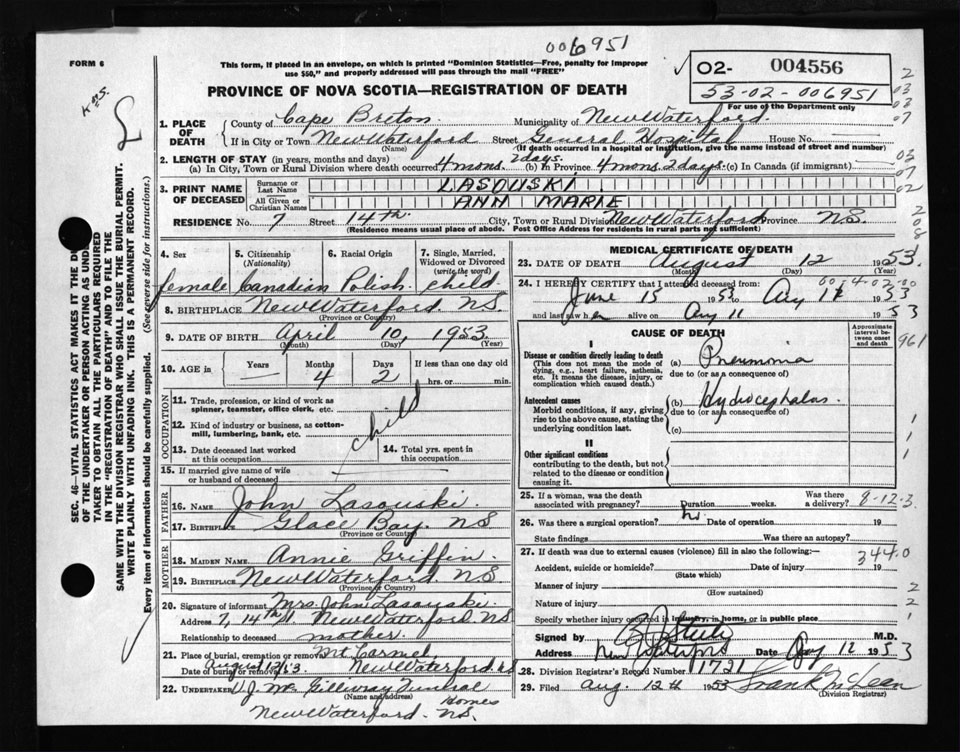 006951
FORM 6
This form, if placed in an envelope, on which is printed "Dominion Statistics—Free, penalty for improper
use $50," and properly addressed will pass through the mail "FREE"
02- 004556
53-02-006951
For use of the Department only
PROVINCE OF NOVA SCOTIA—REGISTRATION OF DEATH
1. PLACE OF DEATH
County of Cape Breton Municipality of New Waterford
If in City or Town New Waterford Street General Hospital House No.
(Name) (If death occurred in a hospital or institution, give the name instead of street and number)
2. LENGTH OF STAY (in years, months and days)
(a) In City, Town or Rural Division where death occurred 4 mons. 2 days. (b) in Province 4 mons 2 days. (c) In Canada (if immigrant)
3. PRINT NAME OF DECEASED
Surname or Last Name LASOUSKI
All Given or Christian Names ANN MARIE
RESIDENCE No. 7 Street 14th City, Town or Rural Division New Waterford Province NS
(Residence means usual place of abode. Post Office Address for residents in rural parts not sufficient)
4. Sex 5. Citizenship (Nationality) 6. Racial Origin 7. Single, Married, Widowed or Divorced (write the word)
female Canadian Polish child
8. BIRTHPLACE New Waterford. NS
(Province or Country)
9. DATE OF BIRTH April 10, 1953
(Month) (Day) (Year)
10. AGE in Years Months Days If less than one day old
— 4 2 hrs. or min.
OCCUPATION
11. Trade, profession, or kind of work as spinner, teamster, office clerk, etc.
12. Kind of industry or business, as cotton-mill, lumbering, bank, etc.
child
13. Date deceased last worked at this occupation
14. Total yrs. spent in this occupation
15. If married give name of wife or husband of deceased
FATHER
16. NAME John Lasouski
17. BIRTHPLACE Glace Bay. NS
(Province or Country)
MOTHER
18. MAIDEN NAME Annie Griffin.
19. BIRTHPLACE New Waterford. NS
(Province or Country)
20. Signature of informant Mrs. John Lasouski.
Address 7, 14th St. New Waterford NS
Relationship to deceased mother.
21. Place of burial, cremation or removal Mt Carmel
Date of burial or removal August 12/53 New Waterford NS
22. UNDERTAKER D. J. Mc Gillivray Funeral
(Name and address) Homes
New Waterford. NS.
MEDICAL CERTIFICATE OF DEATH
23. DATE OF DEATH August 12 1953
(Month) (Day) (Year)
24. I HEREBY CERTIFY that I attended deceased from:
June 15 1953 to Aug 12 1953
and last saw her alive on Aug 11 1953
CAUSE OF DEATH
Approximate interval between onset and death
I
Disease or condition directly leading to death
(This does not mean the mode of dying, e.g., heart failure, asthenia, etc. It means the disease, injury, or complication which caused death.)
(a) Pneumonia
due to (or as a consequence of)
Antecedent causes
Morbid conditions, if any, giving rise to the above cause, stating the underlying condition last.
(b) Hydrocephalas.
due to (or as a consequence of)
(c)
II
Other significant conditions
contributing to the death, but not related to the disease or condition causing it.
25. If a woman, was the death associated with pregnancy? Duration weeks. Was there a delivery?
8-12-3
26. Was there a surgical operation? no Date of operation 19
State findings Was there an autopsy?
27. If death was due to external causes (violence) fill in also the following:
344.0
Accident, suicide or homicide? Date of injury 19
(State which)
Manner of injury
(How sustained)
Nature of injury
Specify whether injury occurred in industry, in home, or in public place
Signed by M.D.
Address New Waterford Date Aug 12 1953
28. Division Registrar's Record Number 1721
29. Filed Aug. 12th 1953 Frank McLean
(Division Registrar)
SEC. 46—VITAL STATISTICS ACT MAKES IT THE DUTY
OF THE UNDERTAKER OR PERSON ACTING AS UNDER-
TAKER TO OBTAIN ALL THE PARTICULARS REQUIRED
IN THE "REGISTRATION OF DEATH" AND TO FILE THE
SAME WITH THE DIVISION REGISTRAR WHO SHALL ISSUE THE BURIAL PERMIT.
WRITE PLAINLY WITH UNFADING INK. THIS IS A PERMANENT RECORD.
Every item of information should be carefully supplied. (See reverse side for instructions.)